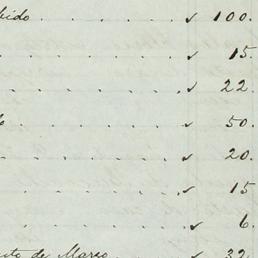 bido . . . . . . . ✓ 100.
. . . . . . . ✓ 15.
. . . . . . . ✓ 22.
. . . . . . . ✓ 50.
. . . . . . . ✓ 20.
. . . . . . . ✓ 15
. . . . . . . ✓ 6.
de Março . . . . ✓ 32.